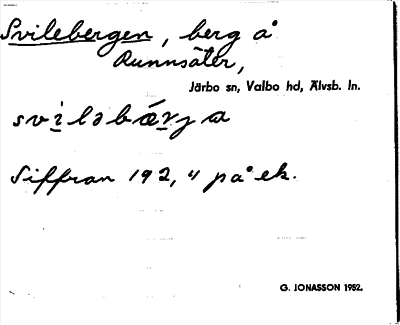 Svilebergen, berg å
Runnsäter,
Järbo sn, Valbo hd, Älvsb. ln.
svi̲ləbǽ̲rja
Siffran 192,4 på ek.
G. JONASSON 1952.